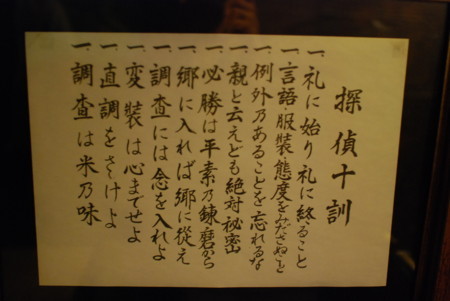 探偵十訓
一、礼に始り礼に終ること
一、言語・服装・態度をみださぬこと
一、例外乃あることを忘れるな
一、親と云えども絶対祕密
一、必勝は平素乃錬磨から
一、郷に入れば郷に従え
一、調査には念を入れよ
一、変装は心までせよ
一、直調をさけよ
一、調査は米乃味